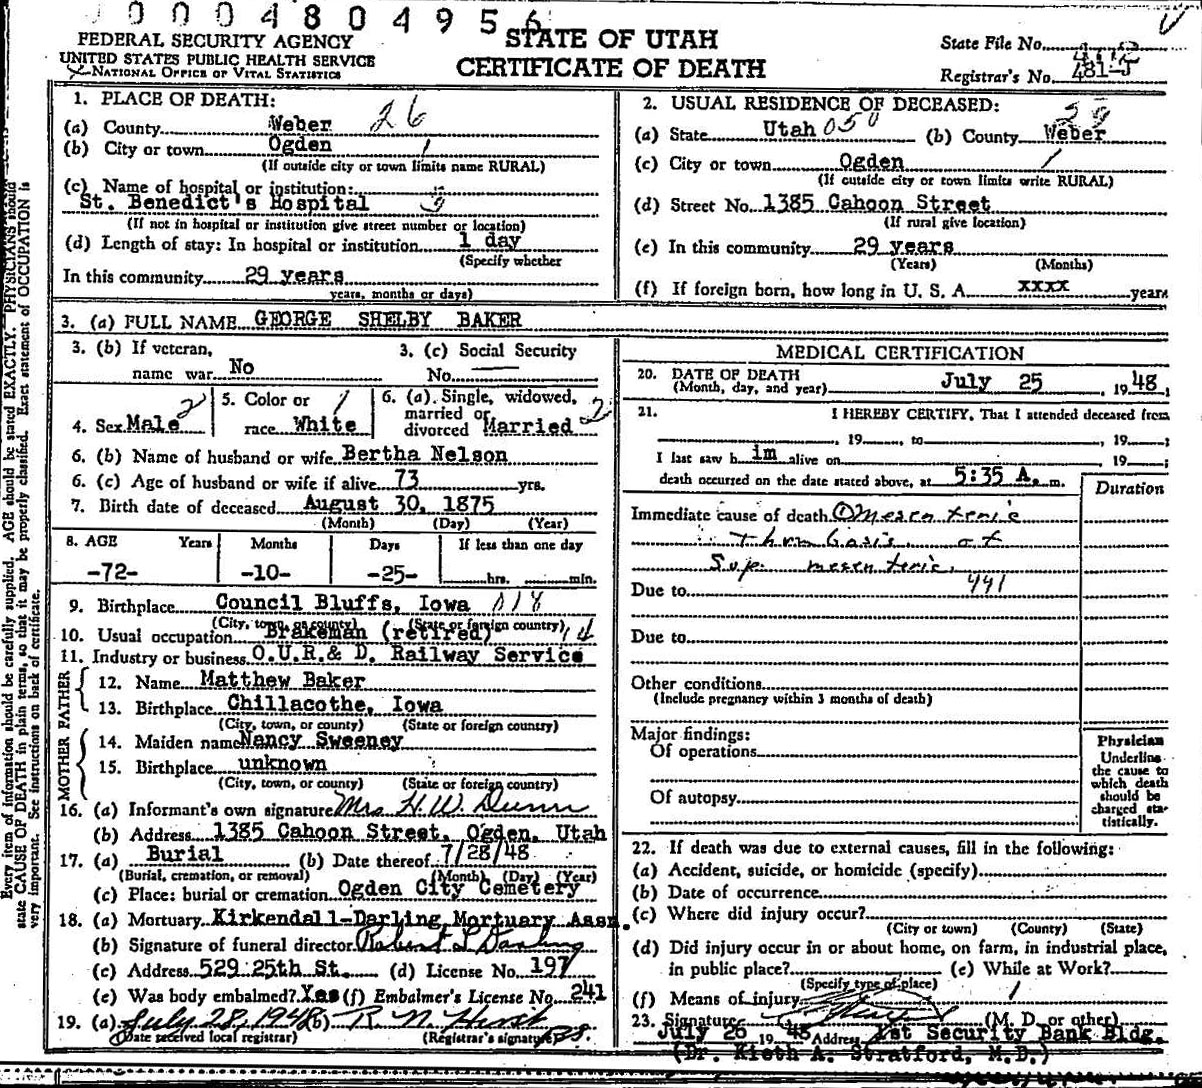 0004804956
FEDERAL SECURITY AGENCY
UNITED STATES PUBLIC HEALTH SERVICE
NATIONAL OFFICE OF VITAL STATISTICS
STATE OF UTAH
CERTIFICATE OF DEATH
State File No.
Registrar's No. 481
1. PLACE OF DEATH:
(a) County Weber 26
(b) City or town Ogden 1
(If outside city or town limits name RURAL)
(c) Name of hospital or institution:
St. Benedict's Hospital
(If not in hospital or institution give street number or location)
(d) Length of stay: In hospital or institution 1 day
(Specify whether
In this community 29 years
years, months or days)
2. USUAL RESIDENCE OF DECEASED:
(a) State Utah 050 (b) County Weber
(c) City or town Ogden 1
(If outside city or town limits write RURAL)
(d) Street No. 1385 Cahoon Street
(If rural give location)
(e) In this community 29 years
(Years) (Months)
(f) If foreign born, how long in U. S. A. xxxx years
3. (a) FULL NAME GEORGE SHELBY BAKER
3. (b) If veteran, name war No
3. (c) Social Security No.
4. Sex Male 2
5. Color or race White 1
6. (a) Single, widowed, married or divorced Married 2
6. (b) Name of husband or wife Bertha Nelson
6. (c) Age of husband or wife if alive 73 yrs.
7. Birth date of deceased August 30, 1875
(Month) (Day) (Year)
8. AGE Years Months Days If less than one day
-72- -10- -25- hrs. min.
9. Birthplace Council Bluffs, Iowa 018
(City, town, or county) (State or foreign country)
10. Usual occupation Brakeman (retired) 14
11. Industry or business O.U.R.& D. Railway Service
FATHER
12. Name Matthew Baker
13. Birthplace Chillacothe, Iowa
(City, town, or county) (State or foreign country)
MOTHER
14. Maiden name Nancy Sweeney
15. Birthplace unknown
(City, town, or county) (State or foreign country)
16. (a) Informant's own signature Mrs H.W. Dunn
(b) Address 1385 Cahoon Street, Ogden, Utah
17. (a) Burial (b) Date thereof 7/28/48
(Burial, cremation, or removal) (Month) (Day) (Year)
(c) Place: burial or cremation Ogden City Cemetery
18. (a) Mortuary Kirkendall-Darling Mortuary Assn.
(b) Signature of funeral director Robert L Darling
(c) Address 529 25th St. (d) License No. 197
(e) Was body embalmed? Yes (f) Embalmer's License No. 241
19. (a) July 28, 1948 (b) R. N. Hirst
(Date received local registrar) (Registrar's signature)
MEDICAL CERTIFICATION
20. DATE OF DEATH
(Month, day, and year) July 25, 1948
21. I HEREBY CERTIFY, That I attended deceased from
, 19 , to , 19 ;
I last saw him alive on , 19 ;
death occurred on the date stated above, at 5:35 A. m.
Duration
Immediate cause of death Mesenteric
Thrombosis of
Sup. mesenteric
Due to 441
Due to
Other conditions
(Include pregnancy within 3 months of death)
Major findings:
Of operations
Of autopsy
Physician
Underline
the cause to
which death
should be
charged sta-
tistically.
22. If death was due to external causes, fill in the following:
(a) Accident, suicide, or homicide (specify)
(b) Date of occurrence
(c) Where did injury occur?
(City or town) (County) (State)
(d) Did injury occur in or about home, on farm, in industrial place,
in public place? (e) While at Work?
(Specify type of place)
(f) Means of injury 1
23. Signature (M. D. or other)
July 26 19 48 Address 1st Security Bank Bldg.
(Dr. Kieth A. Stratford, M.D.)
Every item of information should be carefully supplied. AGE should be stated EXACTLY. PHYSICIANS should
state CAUSE OF DEATH in plain terms, so that it may be properly classified. Exact statement of OCCUPATION is
very important. See instructions on back of certificate.